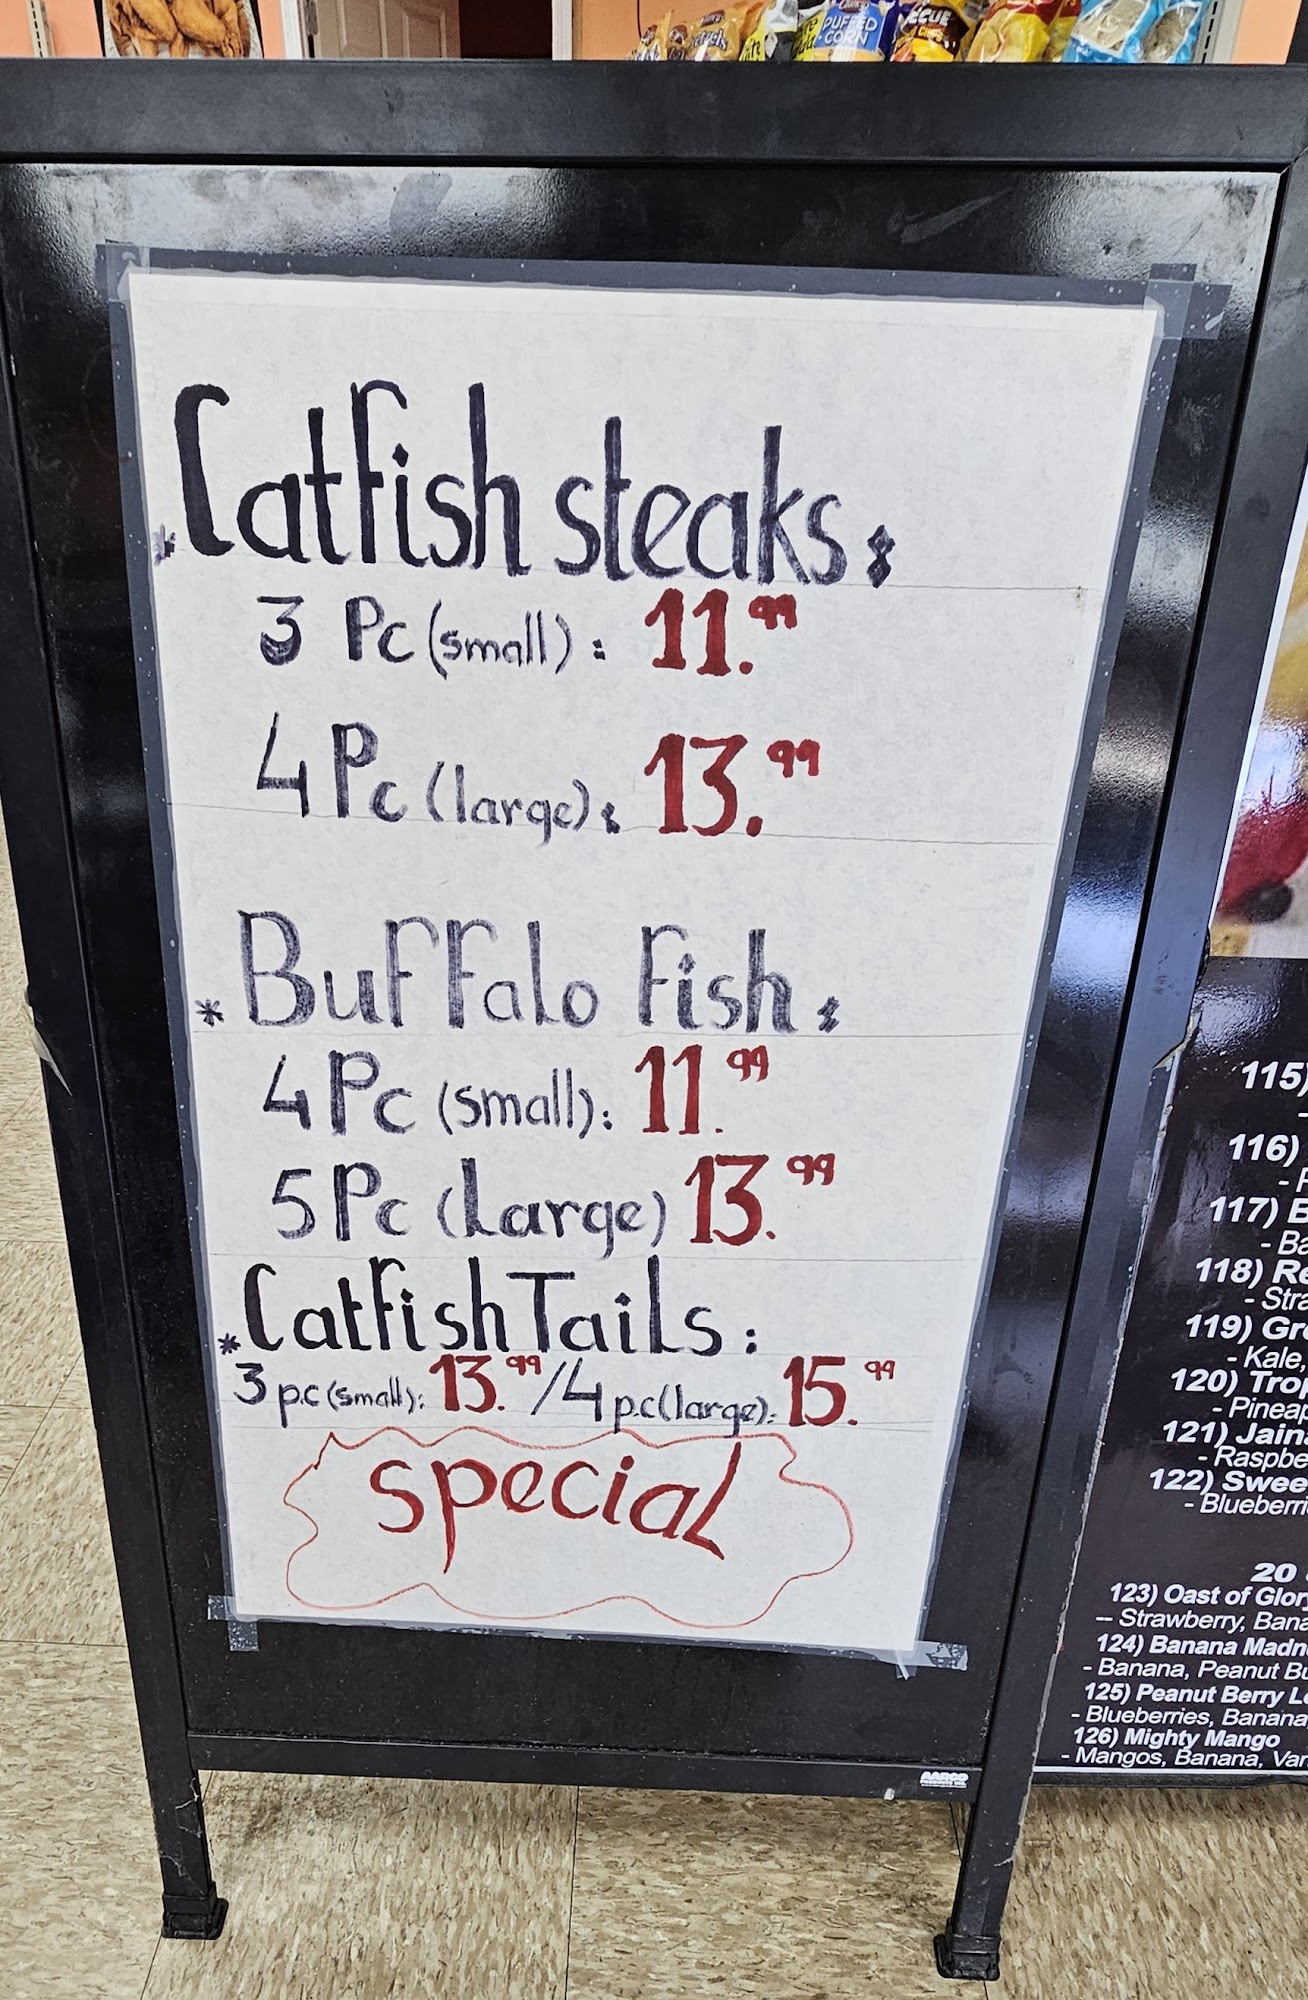 PUFFED
CORN
* Catfish steaks:
3 Pc (small): 11.99
4 Pc (large): 13.99
* Buffalo Fish:
4 Pc (small): 11.99
5 Pc (Large) 13.99
* Catfish Tails:
3 p.c (small): 13.99 / 4 p.c (large): 15.99
special
AARCO
115)
116)
117) B
118) Re
- Stra
119) Gr
- Kale,
120) Trop
- Pineap
121) Jain
- Raspbe
122) Swee
- Blueberri
20
123) Oast of Glory
-- Strawberry, Bana
124) Banana Madn
- Banana, Peanut Bu
125) Peanut Berry L
- Blueberries, Banana
126) Mighty Mango
- Mangos, Banana, Van